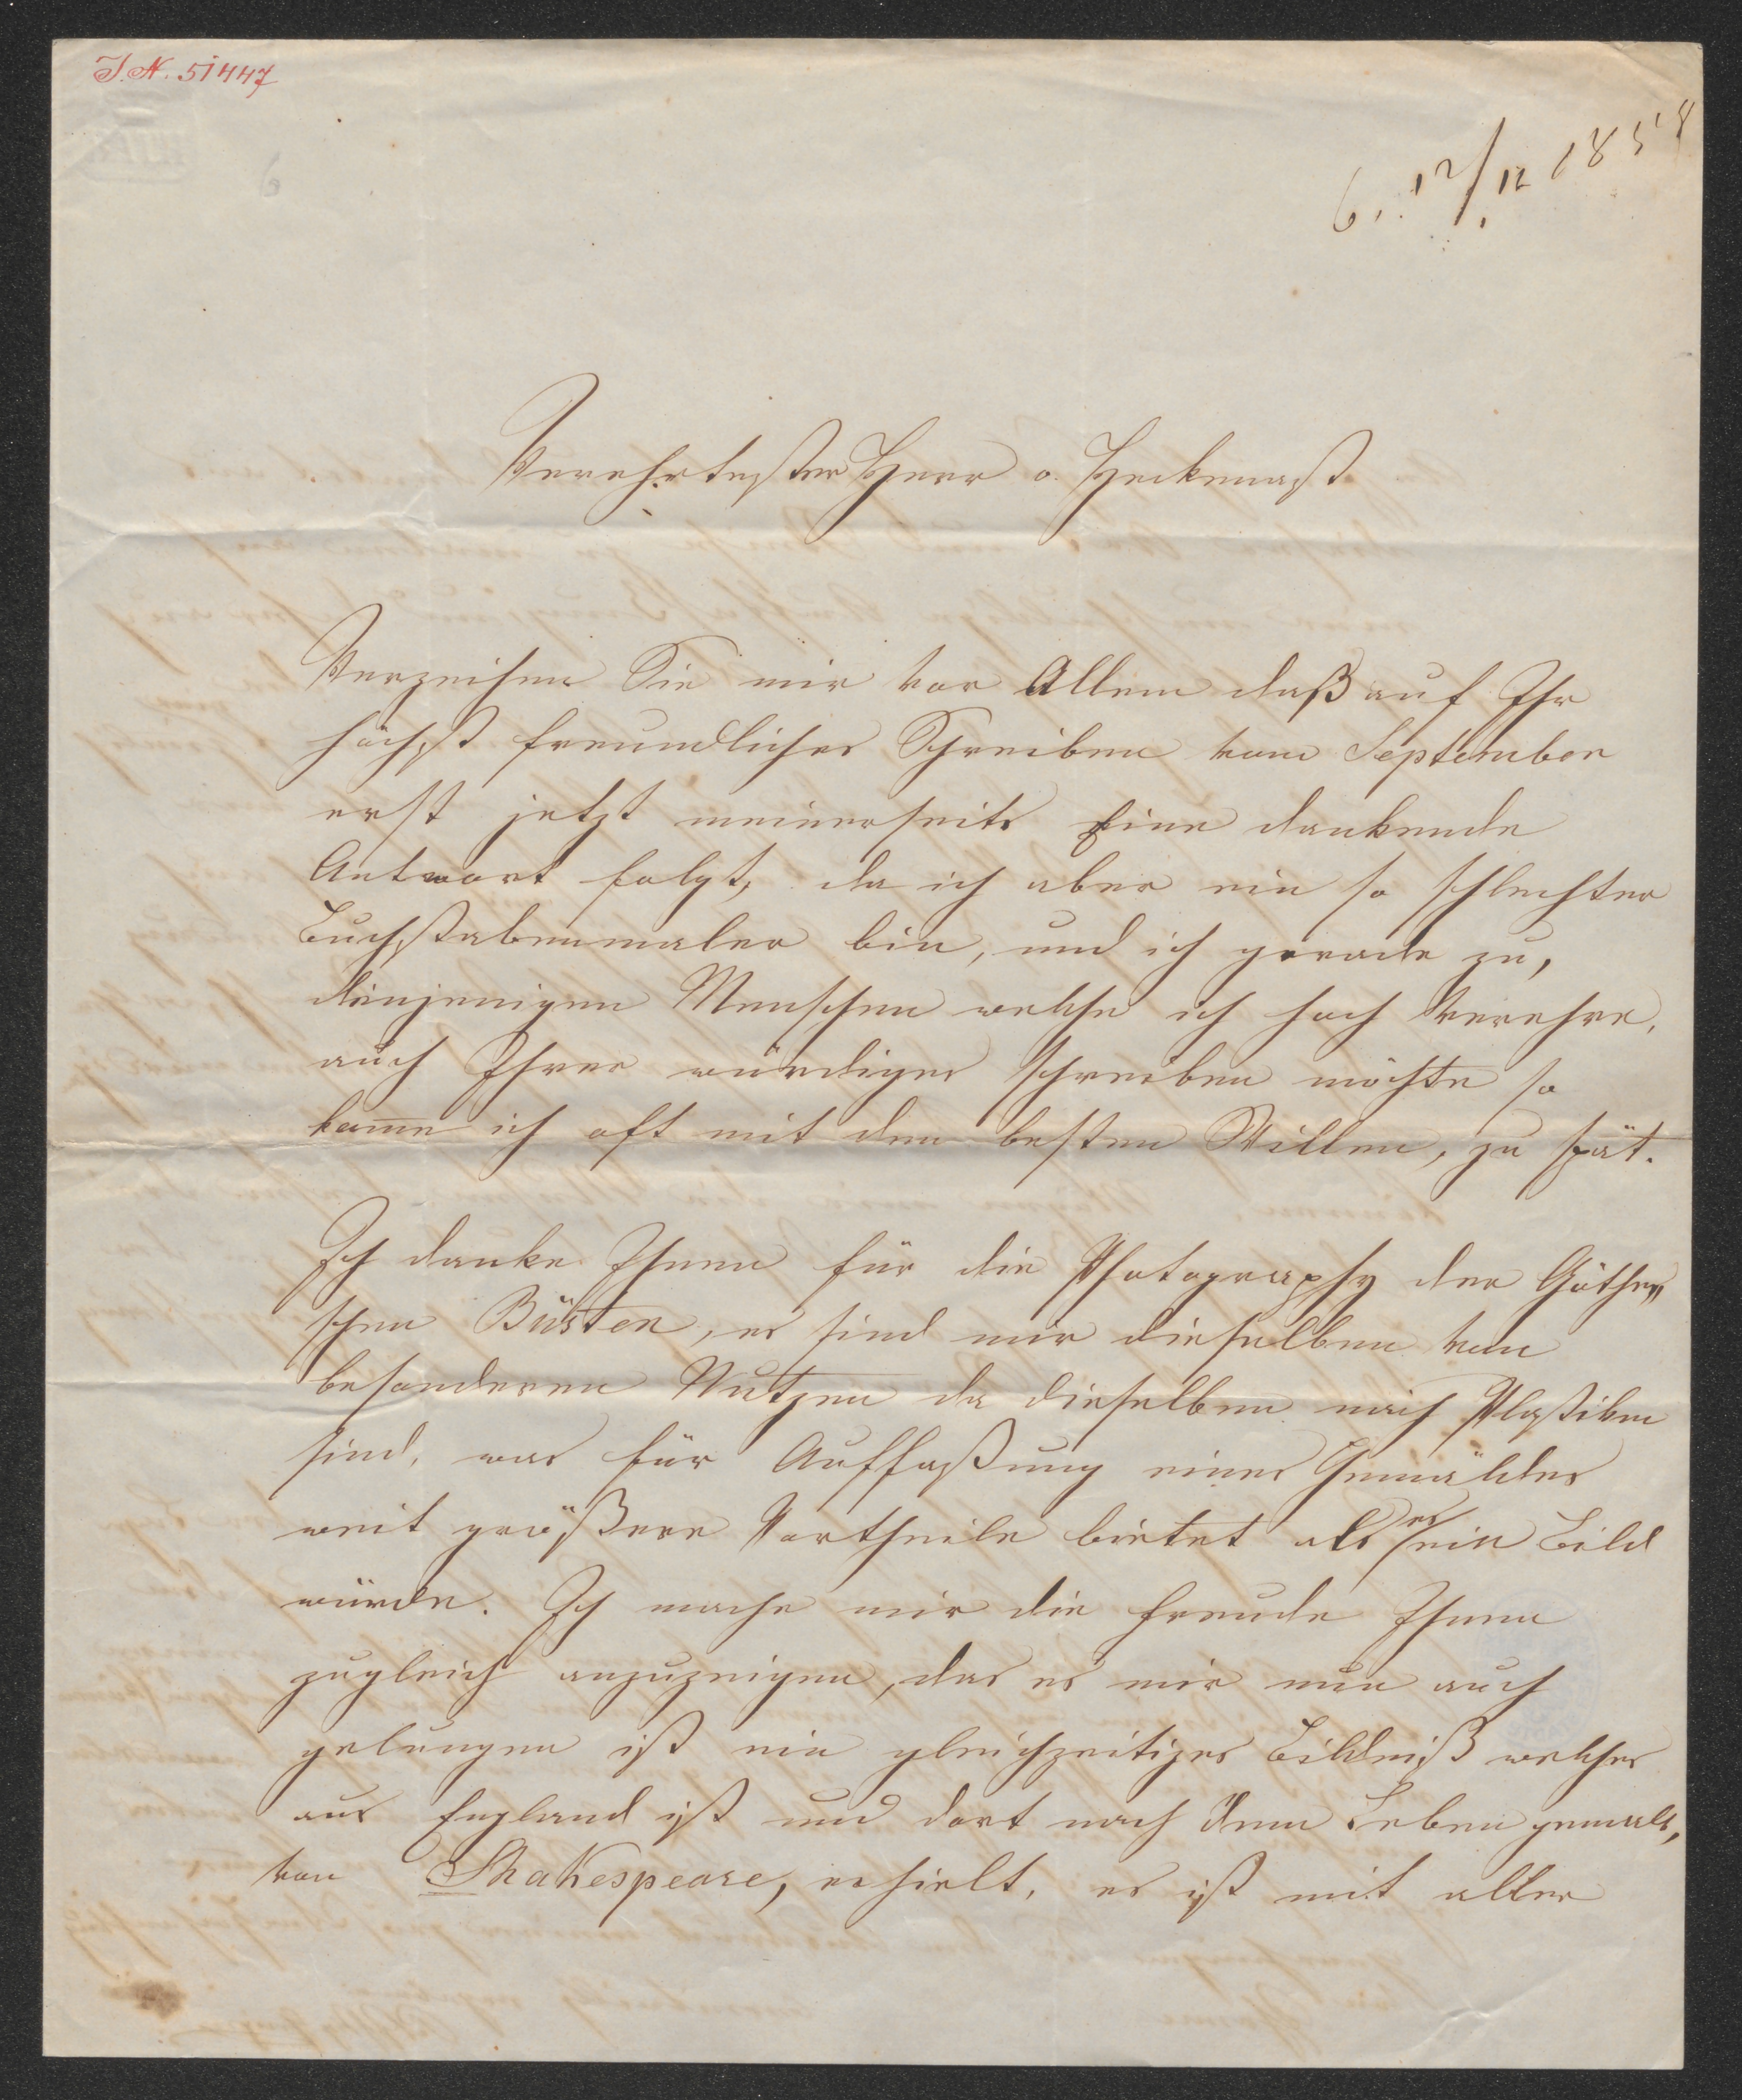 J. N. 51447
6. 12/12 1858
Verehrtester Herr v. Heckenast
Verzeihen Sie mir vor Allem daß auf Ihr
höchst freundliches Schreiben vom September
erst jetzt meinerseits eine dankende
Antwort folgt, da ich aber ein so schlechter
Buchstabenmaler bin, und ich gerade zu,
denjenigen Menschen welche ich hoch verehre,
auch Ihrer würdiges schreiben möchte so
kom̄e ich oft mit dem besten Willen, zu spät.
Ich danke Ihnen für die Photography der Göthe„
schen Büsten, es sind mir dieselben von
besonderem Nutzen da dieselben nach Plastiken
sind, was für Auffaßung eines Gemäldes
weit größere Vortheile bietet als es ein Bild
würde. Ich mache mir die Freude Ihnen
zugleich anzuzeigen, das es mir nun auch
gelungen ist ein gleichzeitiges Bildniß welches
aus England ist und dort nach dem Leben gemalt,
von Shakespeare, erhielt, es ist mit aller